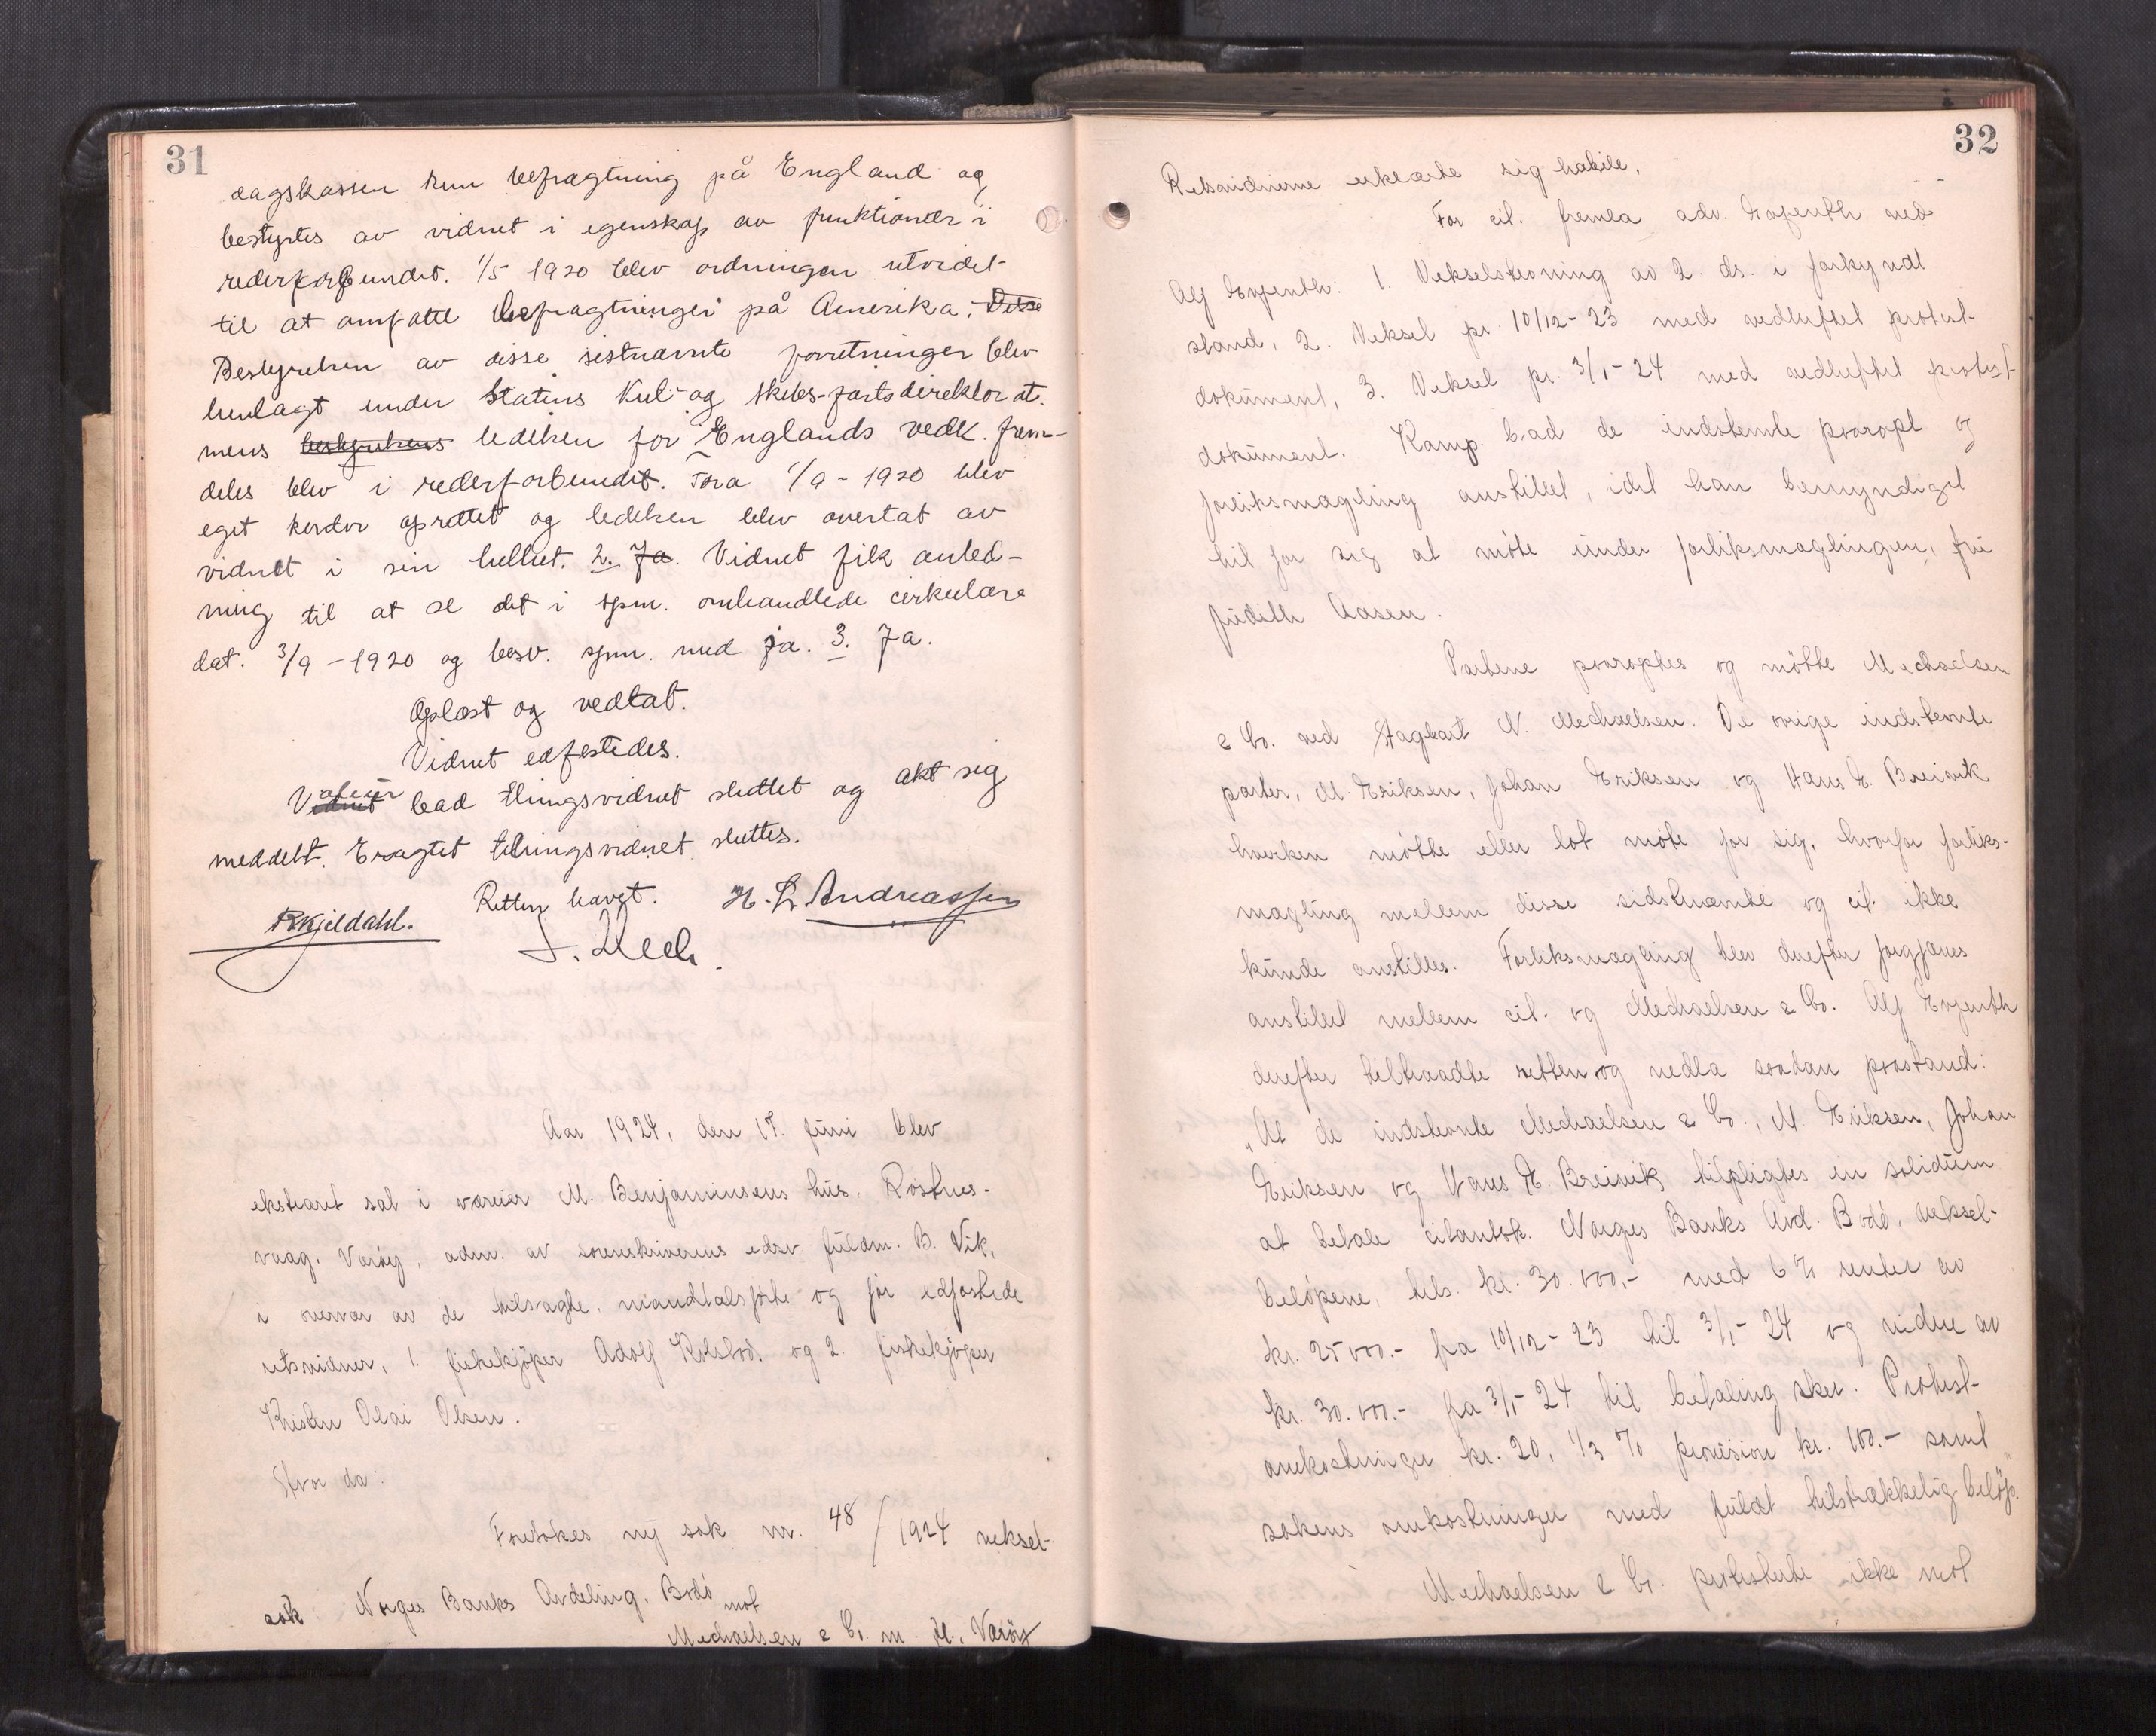 31
dagskassen kun befragtning på England og
bestyrtes av vidnet i egenskap av funktionær i
rederforbundet. 1/5 1920 blev ordningen utvidet
til at omfatte befragtninger på Amerika. Disse
Bestyrelsen av disse sistnævnte forretninger blev
henlagt under Statens Kul- og Skibs-fartsdirektorat.
mens bestyrelsens ledelsen for Englands vedk. frem-
deles blev i rederforbundet. Fra 1/9 - 1920 blev
eget kontor oprettet og ledelsen blev overtat av
vidnet i sin helhet. 2. Ja. Vidnet fik anled-
ning til at se det i spm. omhandlede cirkulære
dat. 3/9 - 1920 og besv. spm. med ja. 3. Ja.
Oplæst og vedtat.
Vidnet edfestedes.
Vidnet bad tingsvidnet sluttet og akt sig
meddelt. Eragtet tingsvidnet sluttes.
Retten hævet. H. L. Andreassen
R Kjeldahl.
Aar 1924, den 17. juni blev
ekstraret sat i væreier M. Benjaminsens hus, Røstnes-
vaag, Værøy, adm. av sorenskriverens edsv fuldm. B. Vik,
i overvær av de tilsagte, mandtalsførte og før edfæstede
retsvidner, 1. fiskekjøper Adolf og 2. fiskekjøper
Kristen Olai Olsen.
Hvor da:
Foretokes ny sak nr. 48/1924 veksel-
sak Norges Banks Avdeling, Bodø mot
Mechaelsen & Co. m. fl., Værøy
32
Retsvidnerne erklærte sig habile.
For cit. fremla adv. Evjenth ved
Alf Evjenth: 1. Vekselstevning av 2. ds. i forkyndt
stand, 2. Veksel pr. 10/12 - 23 med vedheftet protest-
dokument, 3. Veksel pr. 3/1 - 24 med vedheftet protest-
dokument. Komp. bad de indstevnte paaropt og
forliksmægling anstillet, idet han bemyndiget
til for sig at møte under forliksmæglingen, fru
Judith Aasen.
Partene paaroptes og møtte Mechaelsen
& Co. ved Hagbart N. Mechaelsen. De øvrige indstevnte
parter, M. Eriksen, Johan Eriksen og Hans E. Breivik
hverken møtte eller lot møte for sig, hvorfor forliks-
mægling mellem disse sidstnævnte og cit. ikke
kunde anstilles. Forliksmægling blev derefter forgjæves
anstillet mellem cit. og Mechaelsen & Co. Alf Evjenth
derefter tiltraadte retten og nedla saadan paastand:
„At de indstevnte Mechaelsen & Co., M. Eriksen, Johan
Eriksen og Hans E. Breivik tilpligtes in solidum
at betale citantsk. Norges Banks Avd. Bodø, veksel-
beløpene, tils. kr. 30.000,- med 6 % renter av
kr. 25000.- fra 10/12 - 23 til 3/1 - 24 og videre av
kr. 30.000.- fra 3/1 - 24 til betaling sker. Protest-
omkostninger kr. 20, 1/3 % provision kr. 100.- samt
sakens omkostninger med fuldt tilstrækkelig beløp."
Mechaelsen & Co. protesterte ikke mot